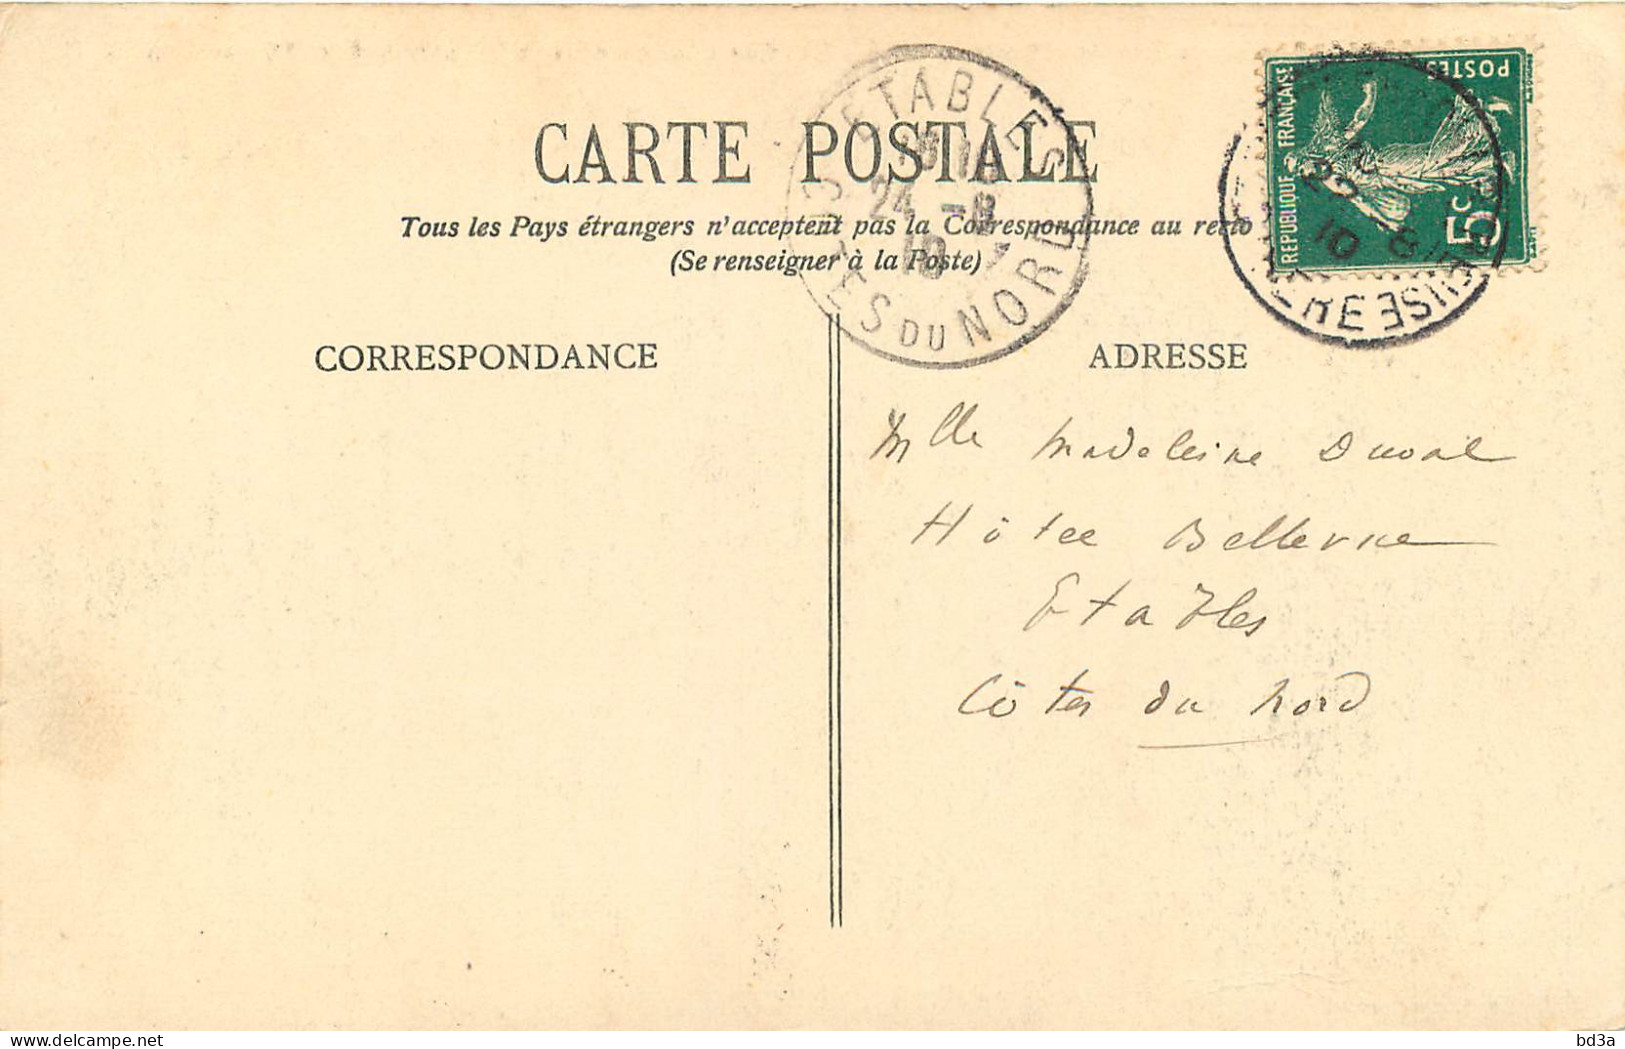 CARTE POSTALE
Tous les Pays étrangers n'acceptent pas la Correspondance au recto
(Se renseigner à la Poste)
CORRESPONDANCE
ADRESSE
ETABLES
24 -8
10
DU NORD
REPUBLIQUE FRANÇAISE
POSTES
5c
22 8
10
Mlle Madeleine Duval
Hôtel Bellevue
Etables
Côtes du Nord
bd3a